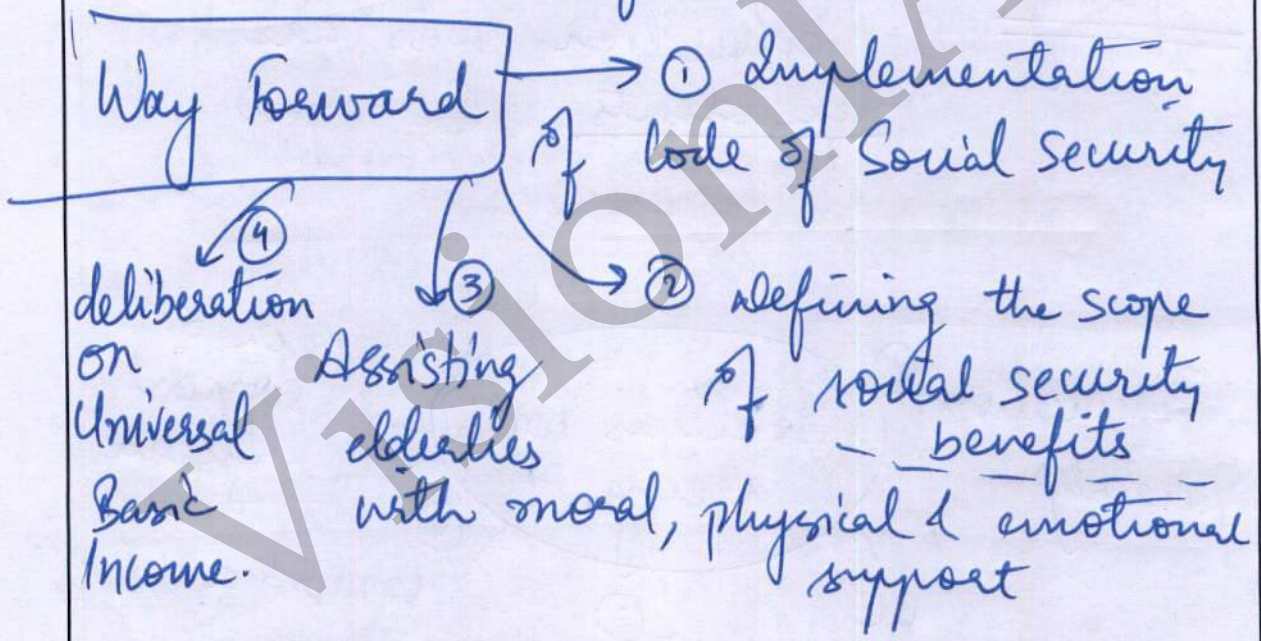 Way Forward
① Implementation
of Code of Social Security
② Defining the scope
of social security
benefits
③
Assisting
elderlies
with moral, physical & emotional
support
④
deliberation
on
Universal
Basic
Income.
Vision